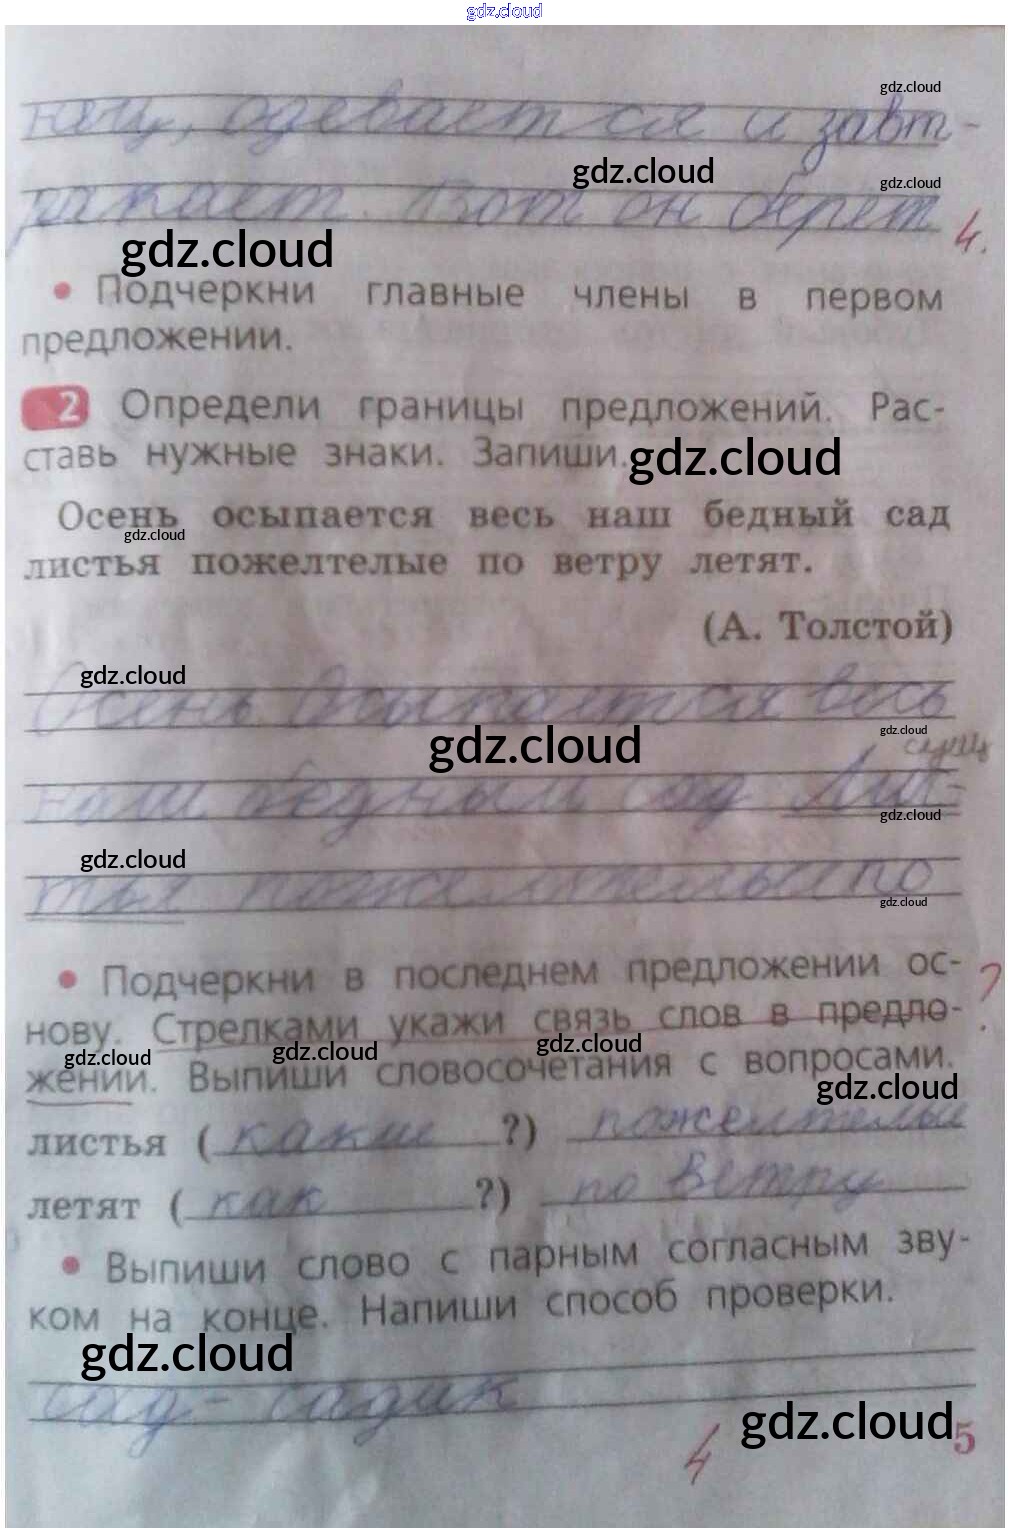 gdz.cloud
нац, одевается и завт-
gdz.cloud
ракает Вот он берет
gdz.cloud
gdz.cloud
4.
gdz.cloud
• Подчеркни главные члены в первом
предложении.
2 Определи границы предложений. Рас-
ставь нужные знаки. Запиши.
gdz.cloud
Осень осыпается весь наш бедный сад
gdz.cloud
листья пожелтелые по ветру летят.
(А. Толстой)
gdz.cloud
Осень осыпается весь
gdz.cloud
gdz.cloud
сущ
наш бедный сад Лис-
gdz.cloud
gdz.cloud
тья по
gdz.cloud
• Подчеркни в последнем предложении ос-
?
нову. Стрелками укажи связь слов в предло-
gdz.cloud
gdz.cloud
gdz.cloud
жении. Выпиши словосочетания с вопросами.
gdz.cloud
листья ( какие ?) пожелтелые
летят ( как ?) по ветру
• Выпиши слово с парным согласным зву-
ком на конце. Напиши способ проверки.
gdz.cloud
сад - садик
gdz.cloud
4
5